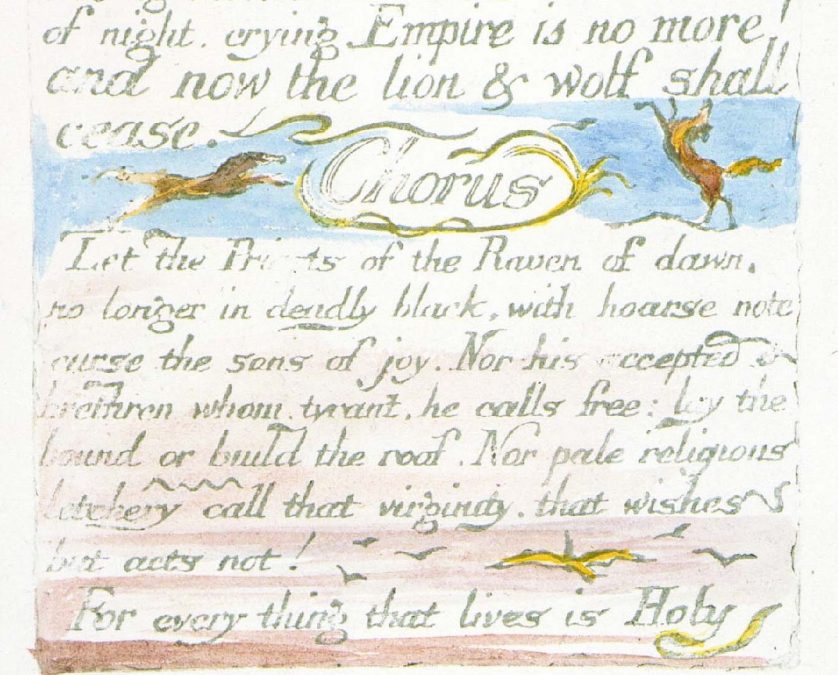 of night, crying Empire is no more!
and now the lion & wolf shall
cease.
Chorus
Let the Priests of the Raven of dawn,
no longer in deadly black, with hoarse note
curse the sons of joy. Nor his accepted
brethren whom, tyrant, he calls free: lay the
bound or build the roof. Nor pale religious
letchery call that virginity, that wishes
but acts not!
For every thing that lives is Holy